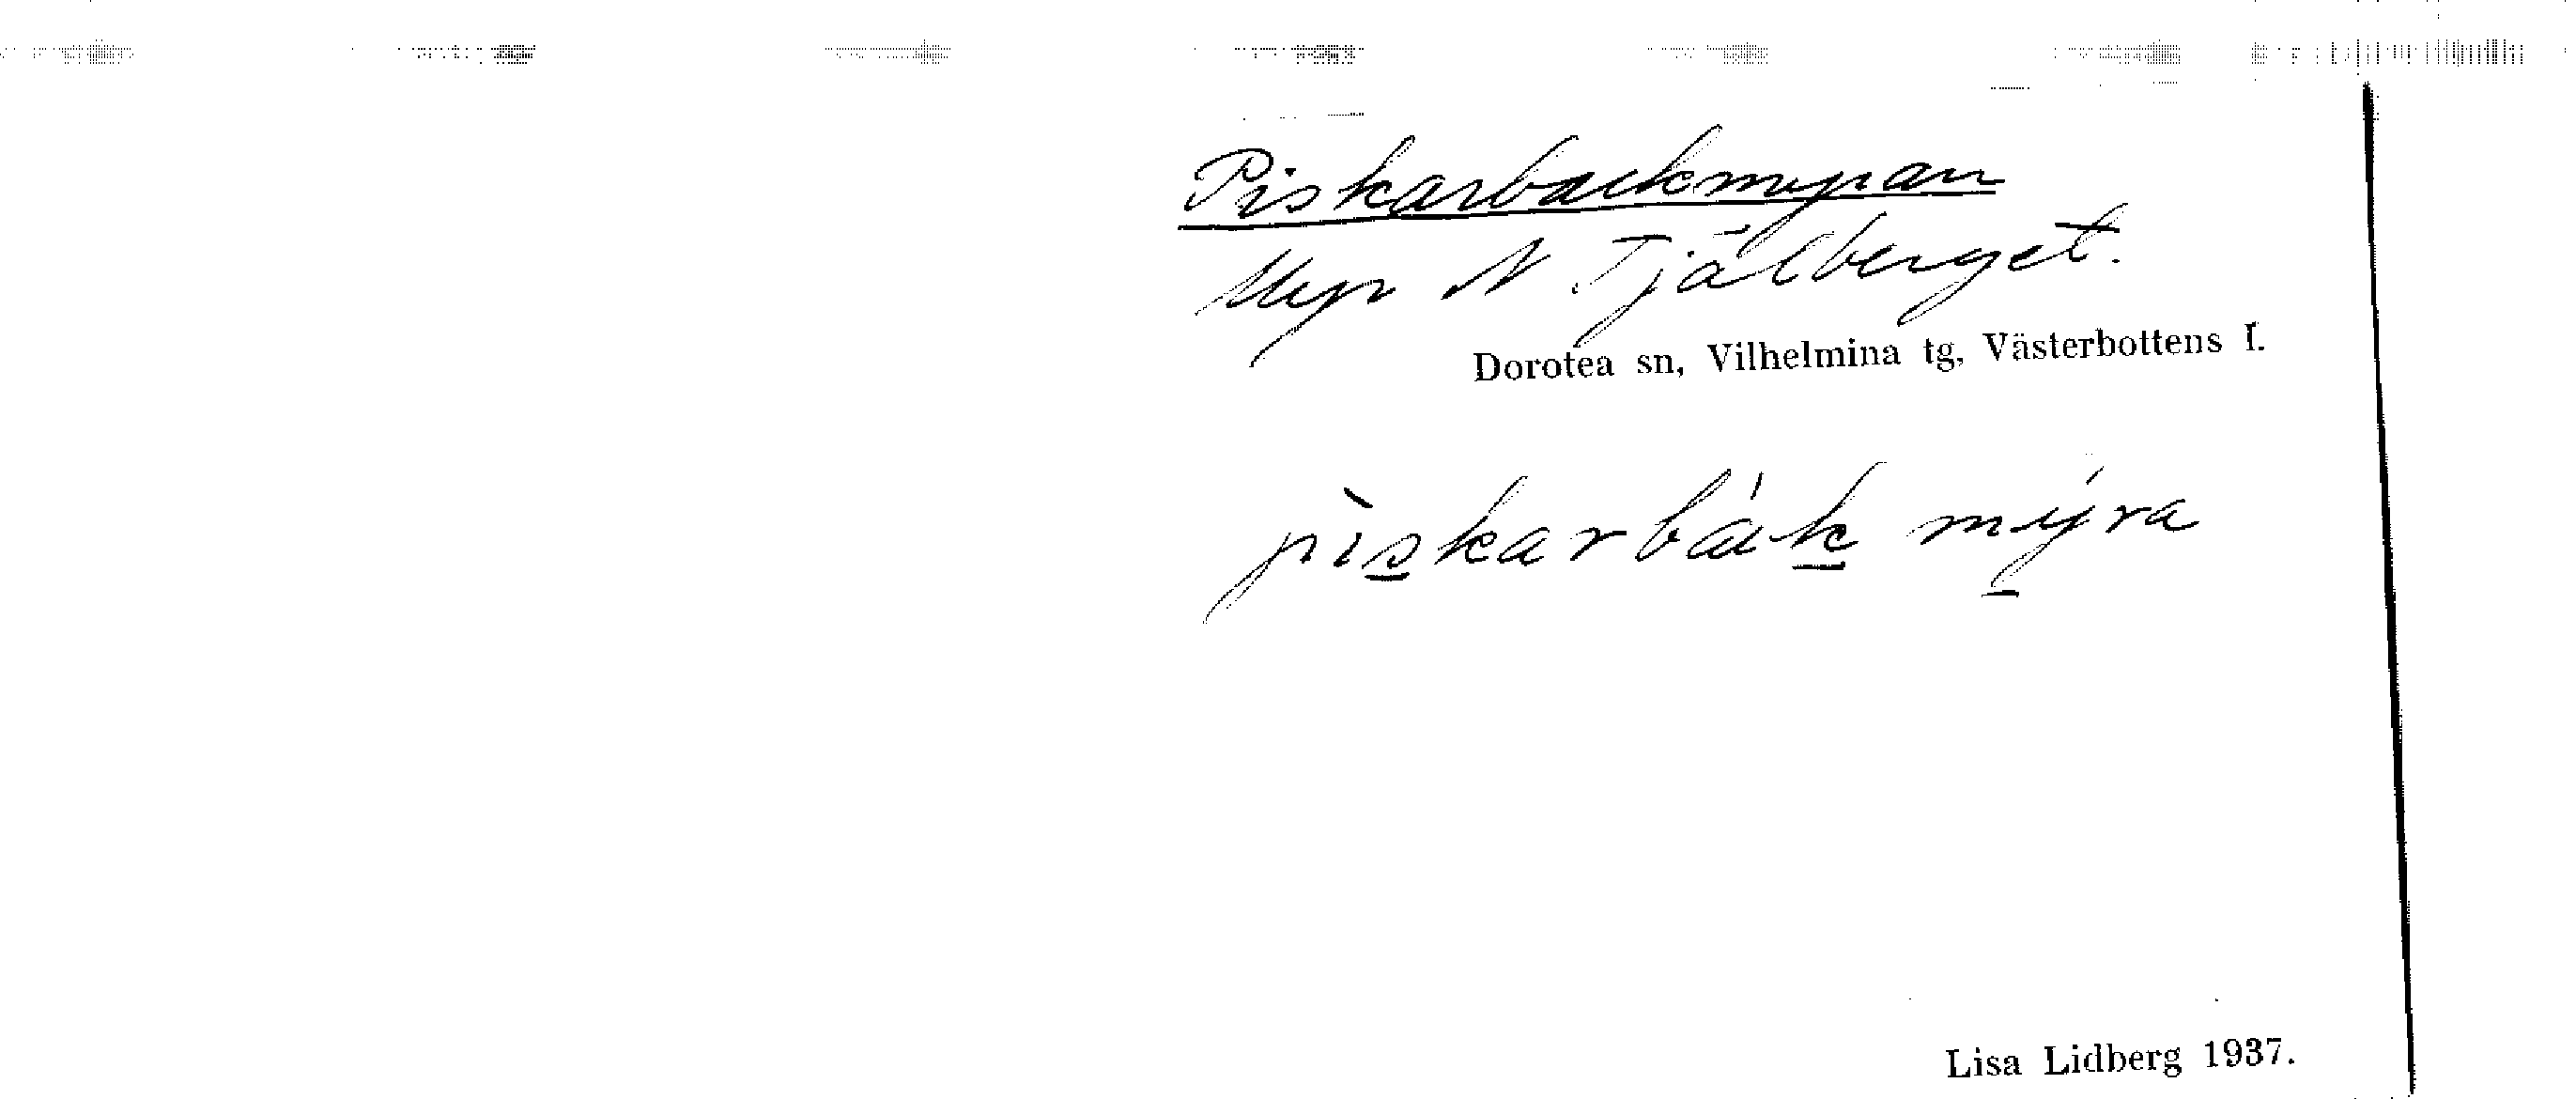 Piskarbackmyran
Myr N Tjålberget.
Dorotea sn, Vilhelmina tg, Västerbottens l.
pìskarbák mýra
Lisa Lidberg 1937.